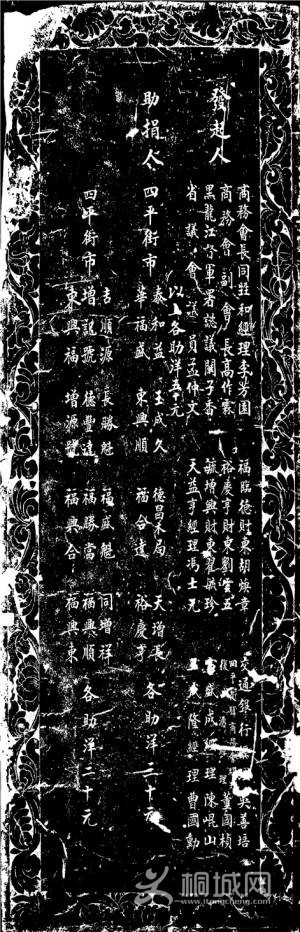 發起人
商務會長同益和經理李芳園
商務會副會長高作霖
黑龍江督軍署諮議關子香
省議會議員孟傳文
福臨德財東胡煥章
裕慶亨財東劉雲五
毓增興財東翟蔭珍
天益亨經理馮士元
交通銀行 吳善培
董國楨
富盛成經理陳崐山
隆經理曹國勳
以上各助洋五 元
助捐人
四平街市 泰和益 玉成久 德昌木局 天增長
幸福盛 東興順 福合達 裕慶亨 各助洋三十元
四平街市 吉順源 長勝魁 福盛魁 同增祥
增記號 德豐達 福勝當 福興順
東興福 增源號 福興合 福興東 各助洋二十元
桐城网
www.itongcheng.com